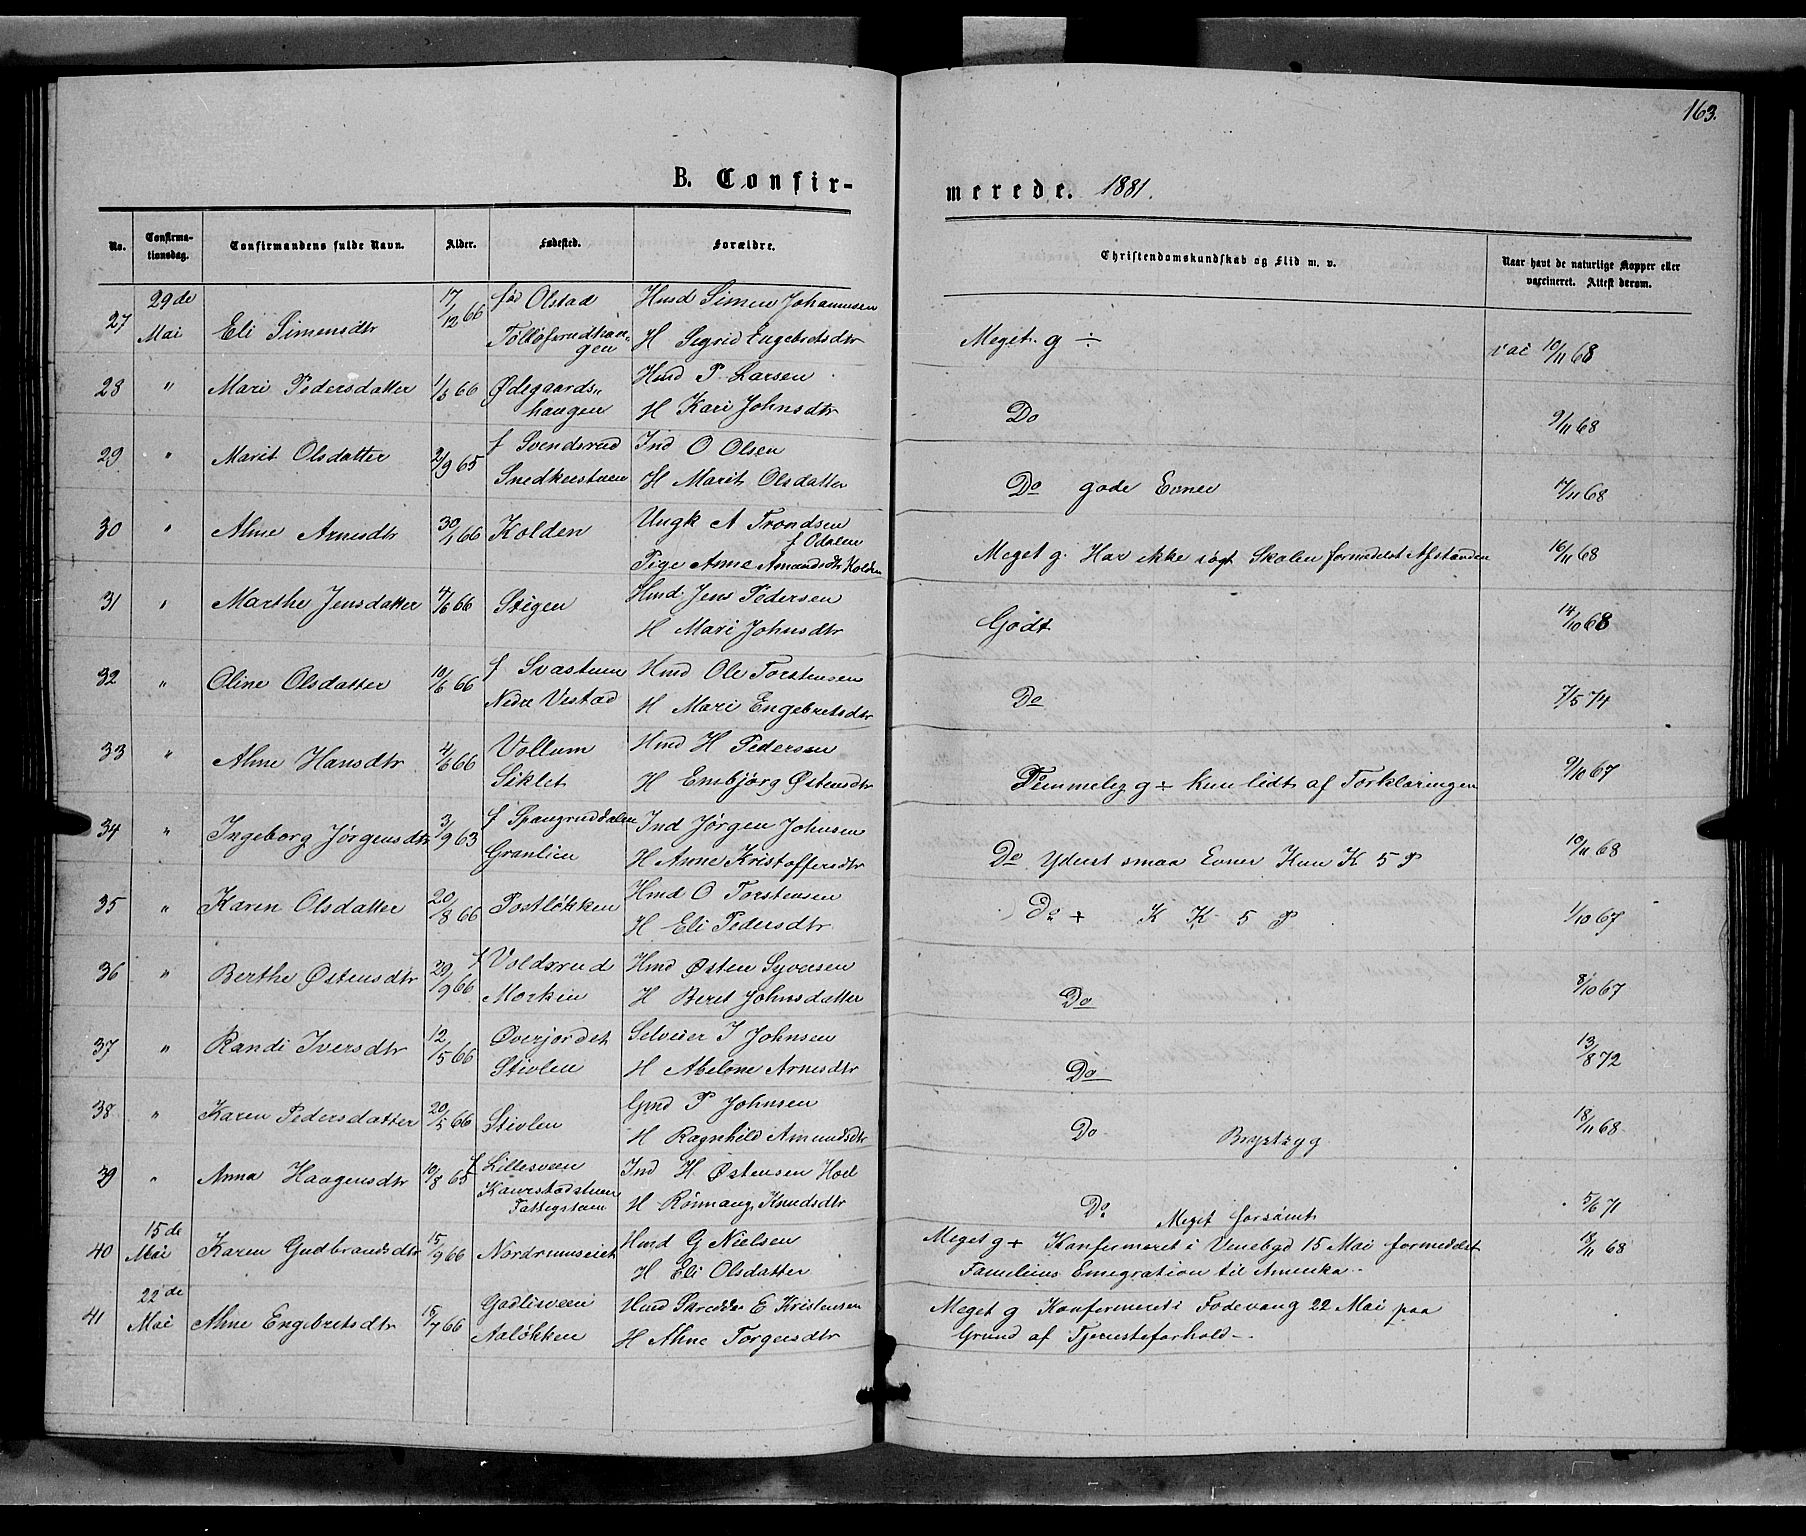 163.
B. Confir-
merede. 1881.
No. Confirma-tionsdag. Confirmandens fulde Navn. Alder. Fødested. Forældre. Christendomskundskab og Flid m. v. Naar havt de naturlige Kopper eller vaccineret. Attest derom.
29de 17/12 66 fød Olstad Hmd Simen Johannesen
27 Mai Eli Simensdtr H Sigrid Engebretsdtr Meget g ÷ vac 10/11 68
28 " Mari Pedersdatter 1/3 66 Ødegaards- Hmd P. Larsen
haugen H Kari Johnsdtr Do 9/11 68
29 " Marit Olsdatter 2/9 65 f Svendsrud Ind O Olsen
Snedkerstuen H Marit Olsdatter Do gode Evner 17/11 68
30 " Ahne Arnesdtr 30/1 66 Kolden Ungk A Trondsen
f Odalen
Pige Anne Amundsdtr Kolden Meget g. Har ikke søgt Skolen formedelst Afstanden 16/11 68
31 " Marthe Jensdatter 4/6 66 Stigen Hmd Jens Pedersen
H Mari Johnsdtr Godt 14/10 68
32 " Oline Olsdatter 10/6 66 f Svastuen Hmd Ole Torstensen
Nedre Vestad H Mari Engebretsdtr Do 7/5 74
33 " Ahne Hansdtr 4/6 66 Vollum Hmd H Pedersen
Siklet H Embjørg Østensdtr Temmelig g + kun lidt af Forklaringen 9/10 67
34 " Ingeborg Jørgensdtr 3/9 63 f Spangruddalen Ind Jørgen Johnsen
Granlien H Anne Kristoffersdtr Do Yderst smaa Evner Kun K 5 P 10/11 68
35 " Karen Olsdatter 20/8 66 Postløkken Hmd O Torstensen
H Eli Pedersdtr Do + K K 5 P 1/10 67
36 " Berthe Østensdtr 29/9 66 f Voldsrud Hmd Østen Syversen
Morken H Beret Johnsdatter Do 8/10 67
37 " Randi Iversdtr 12/5 66 Øverjordet Selveier I Johnsen
Stivlen H Abelone Arnesdtr Do 13/8 72
38 " Karen Pedersdatter 20/5 66 Stivlen Gmd P Johnsen
H Ragnhild Amundsdtr Do Brystsyg 18/11 68
39 " Anna Haagensdtr 10/8 65 f Lillesveen Ind H Østensen Hoel
Kaurstadstuen
Fattigstuen H Rønnaug Knudsdtr Do Meget forsømt 5/6 71
15de
40 Mai Karen Gudbrandsdtr 15/9 66 Nordrumseiet Hmd G Nielsen Meget g + Konfirmeret i Venebygd 15 Mai formedelst 18/11 68
H Eli Olsdatter Familiens Emigration til Amerika
22de
41 Mai Ahne Engebretsdtr 15/7 66 Gadlisveen Hmd E Kristensen Meget g Konfirmeret i Fodevang 22 Mai paa
Aaløkken H Ahne Torgersdtr Grund af Tjenesteforhold